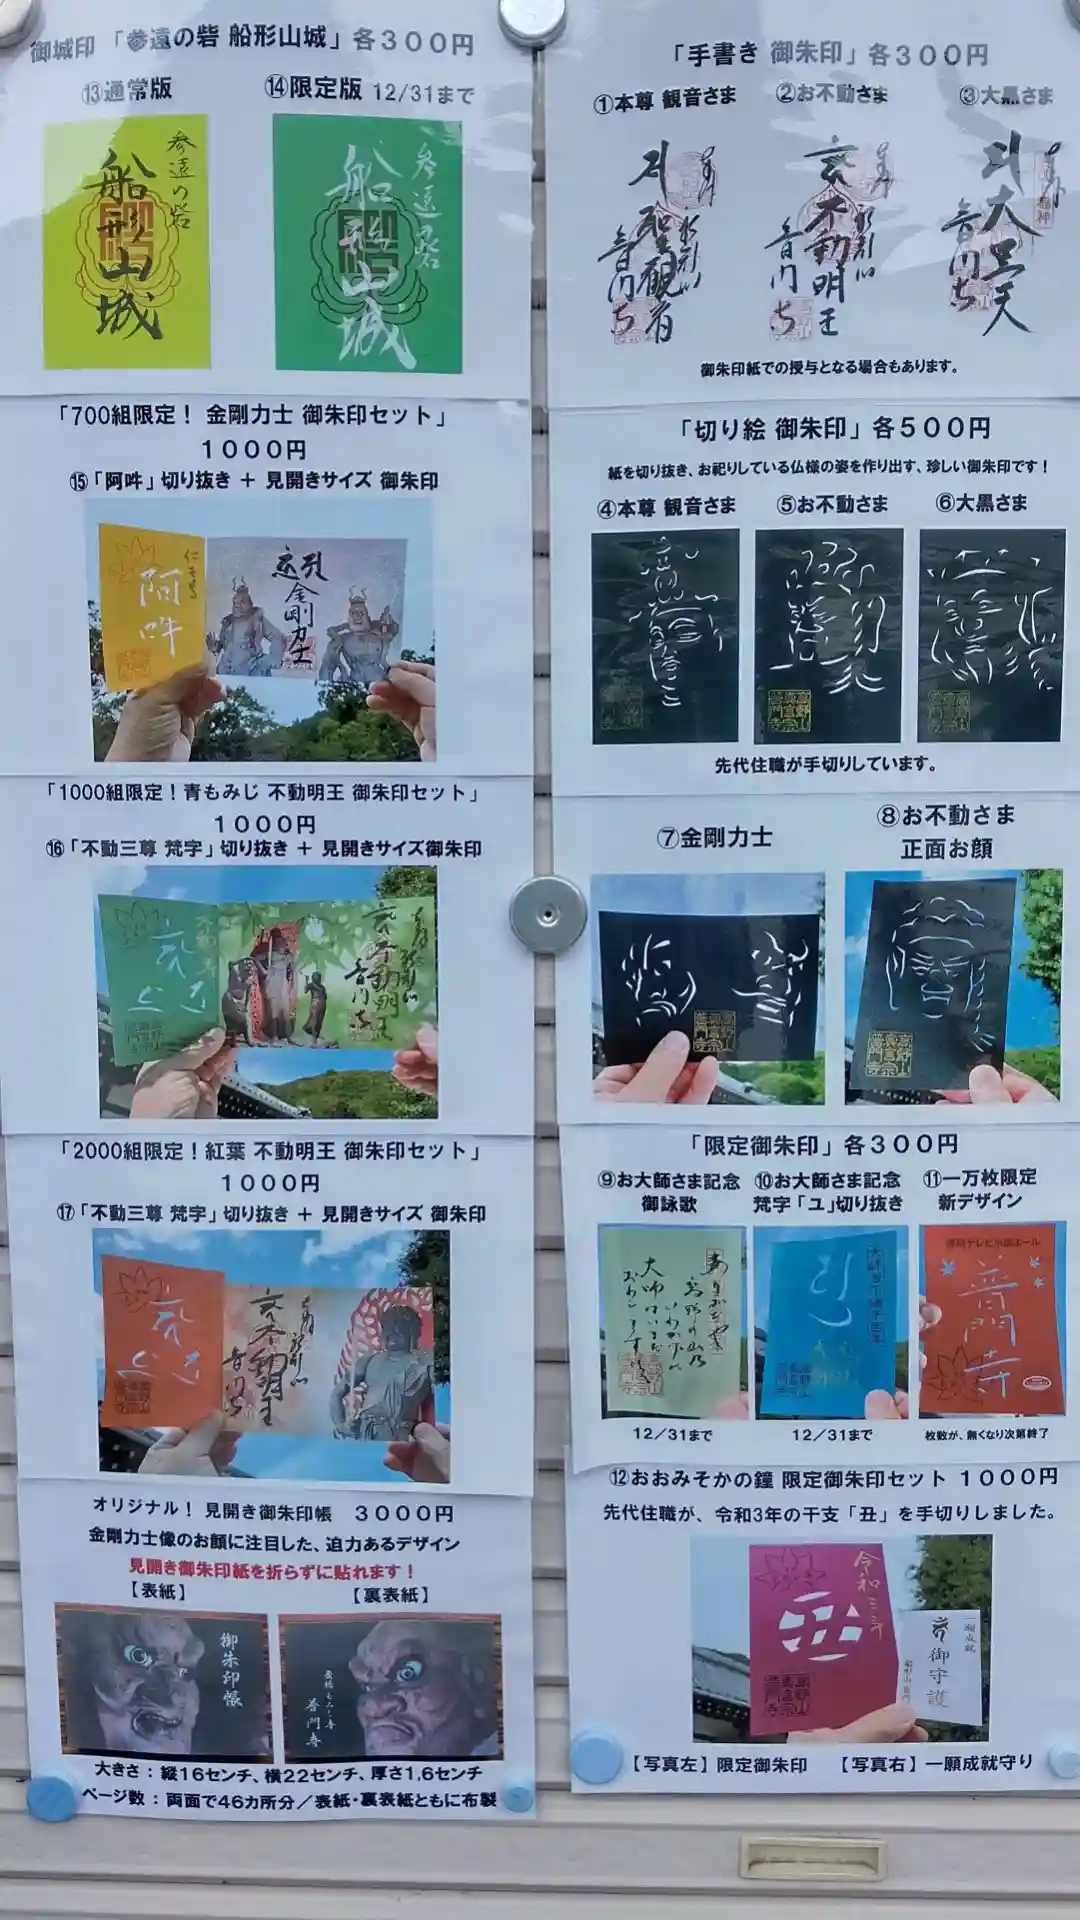 御城印 「参遠の砦 船形山城」 各300円
⑬通常版
⑭限定版 12/31まで
参遠の砦
船形山城
参遠の砦
船形山城
「700組限定！ 金剛力士 御朱印セット」
1000円
⑮「阿吽」切り抜き ＋ 見開きサイズ 御朱印
阿吽
金剛力士
「1000組限定！青もみじ 不動明王 御朱印セット」
1000円
⑯「不動三尊 梵字」切り抜き ＋ 見開きサイズ御朱印
「2000組限定！紅葉 不動明王 御朱印セット」
1000円
⑰「不動三尊 梵字」切り抜き ＋ 見開きサイズ 御朱印
オリジナル！ 見開き御朱印帳 3000円
金剛力士像のお顔に注目した、迫力あるデザイン
見開き御朱印紙を折らずに貼れます！
【表紙】
【裏表紙】
御朱印帳
豊橋 もみじ寺
普門寺
大きさ：縦16センチ、横22センチ、厚さ1,6センチ
ページ数：両面で46カ所分／表紙・裏表紙ともに布製
「手書き 御朱印」各300円
①本尊 観音さま
②お不動さま
③大黒さま
聖観音
普門寺
不動明王
普門寺
大黒天
普門寺
御朱印紙での授与となる場合もあります。
「切り絵 御朱印」各500円
紙を切り抜き、お祀りしている仏様の姿を作り出す、珍しい御朱印です！
④本尊 観音さま
⑤お不動さま
⑥大黒さま
先代住職が手切りしています。
⑦金剛力士
⑧お不動さま
正面お顔
「限定御朱印」各300円
⑨お大師さま記念
御詠歌
⑩お大師さま記念
梵字「ユ」切り抜き
⑪一万枚限定
新デザイン
普門寺
12/31まで
12/31まで
枚数が、無くなり次第終了
⑫おおみそかの鐘 限定御朱印セット 1000円
先代住職が、令和3年の干支「丑」を手切りしました。
令和三年
一願成就
御守護
【写真左】限定御朱印
【写真右】一願成就守り